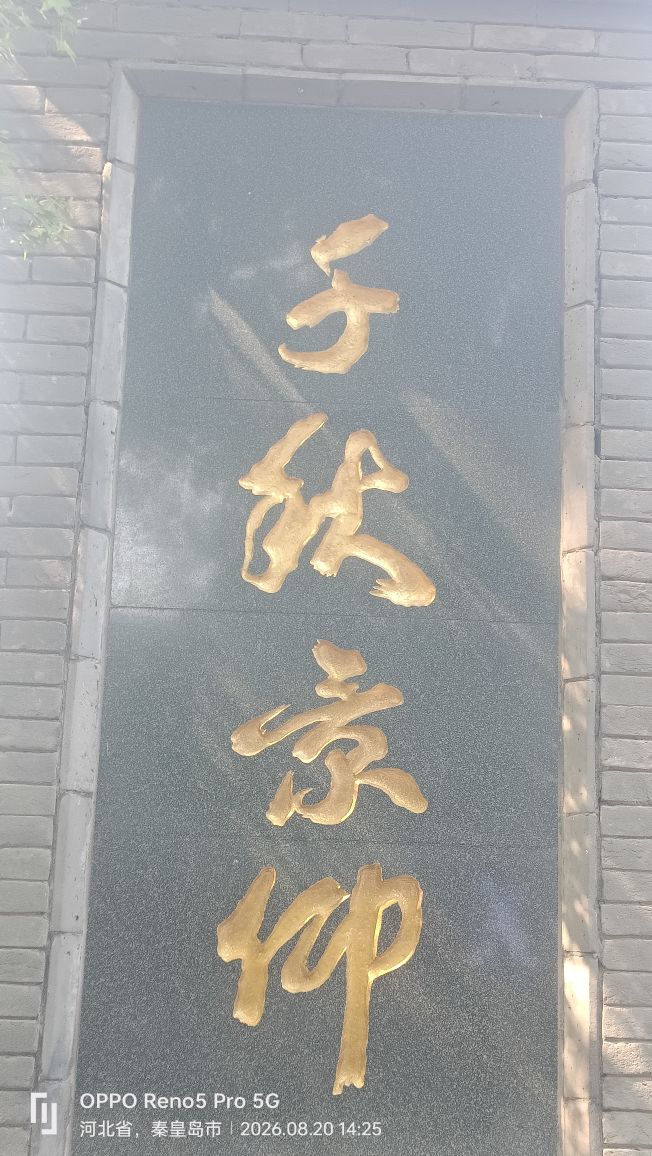 千秋景仰
OPPO Reno5 Pro 5G
河北省，秦皇岛市 | 2026.08.20 14:25